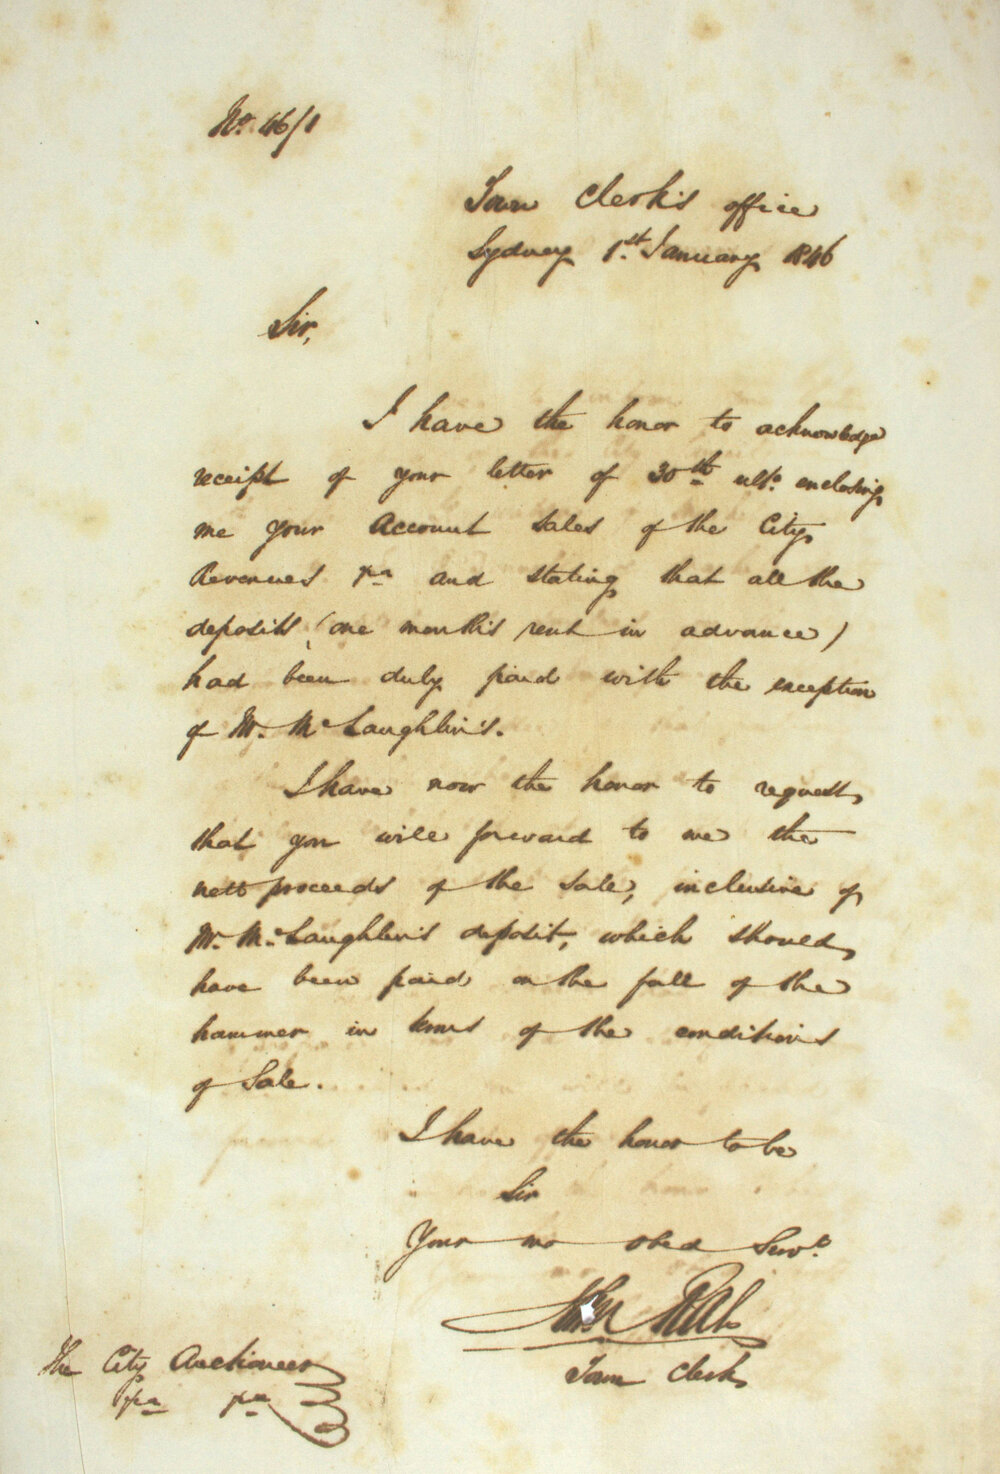 No. 46/1
Town Clerk's office
Sydney 1st January 1846
Sir,
I have the honor to acknowledge
receipt of your letter of 30th ulto. enclosing
me your Account Sales of the City
Revenues &c and stating that all the
deposits (one month's rent in advance)
had been duly paid with the exception
of Mr. McLaughlin's.
I have now the honor to request
that you will forward to me the
nett proceeds of the sale, inclusive of
Mr. McLaughlin's deposit, which should
have been paid on the fall of the
hammer in terms of the conditions
of Sale.
I have the honor to be
Sir
Your mo obed Servt
Town Clerk
The City Auctioneer
&c &c